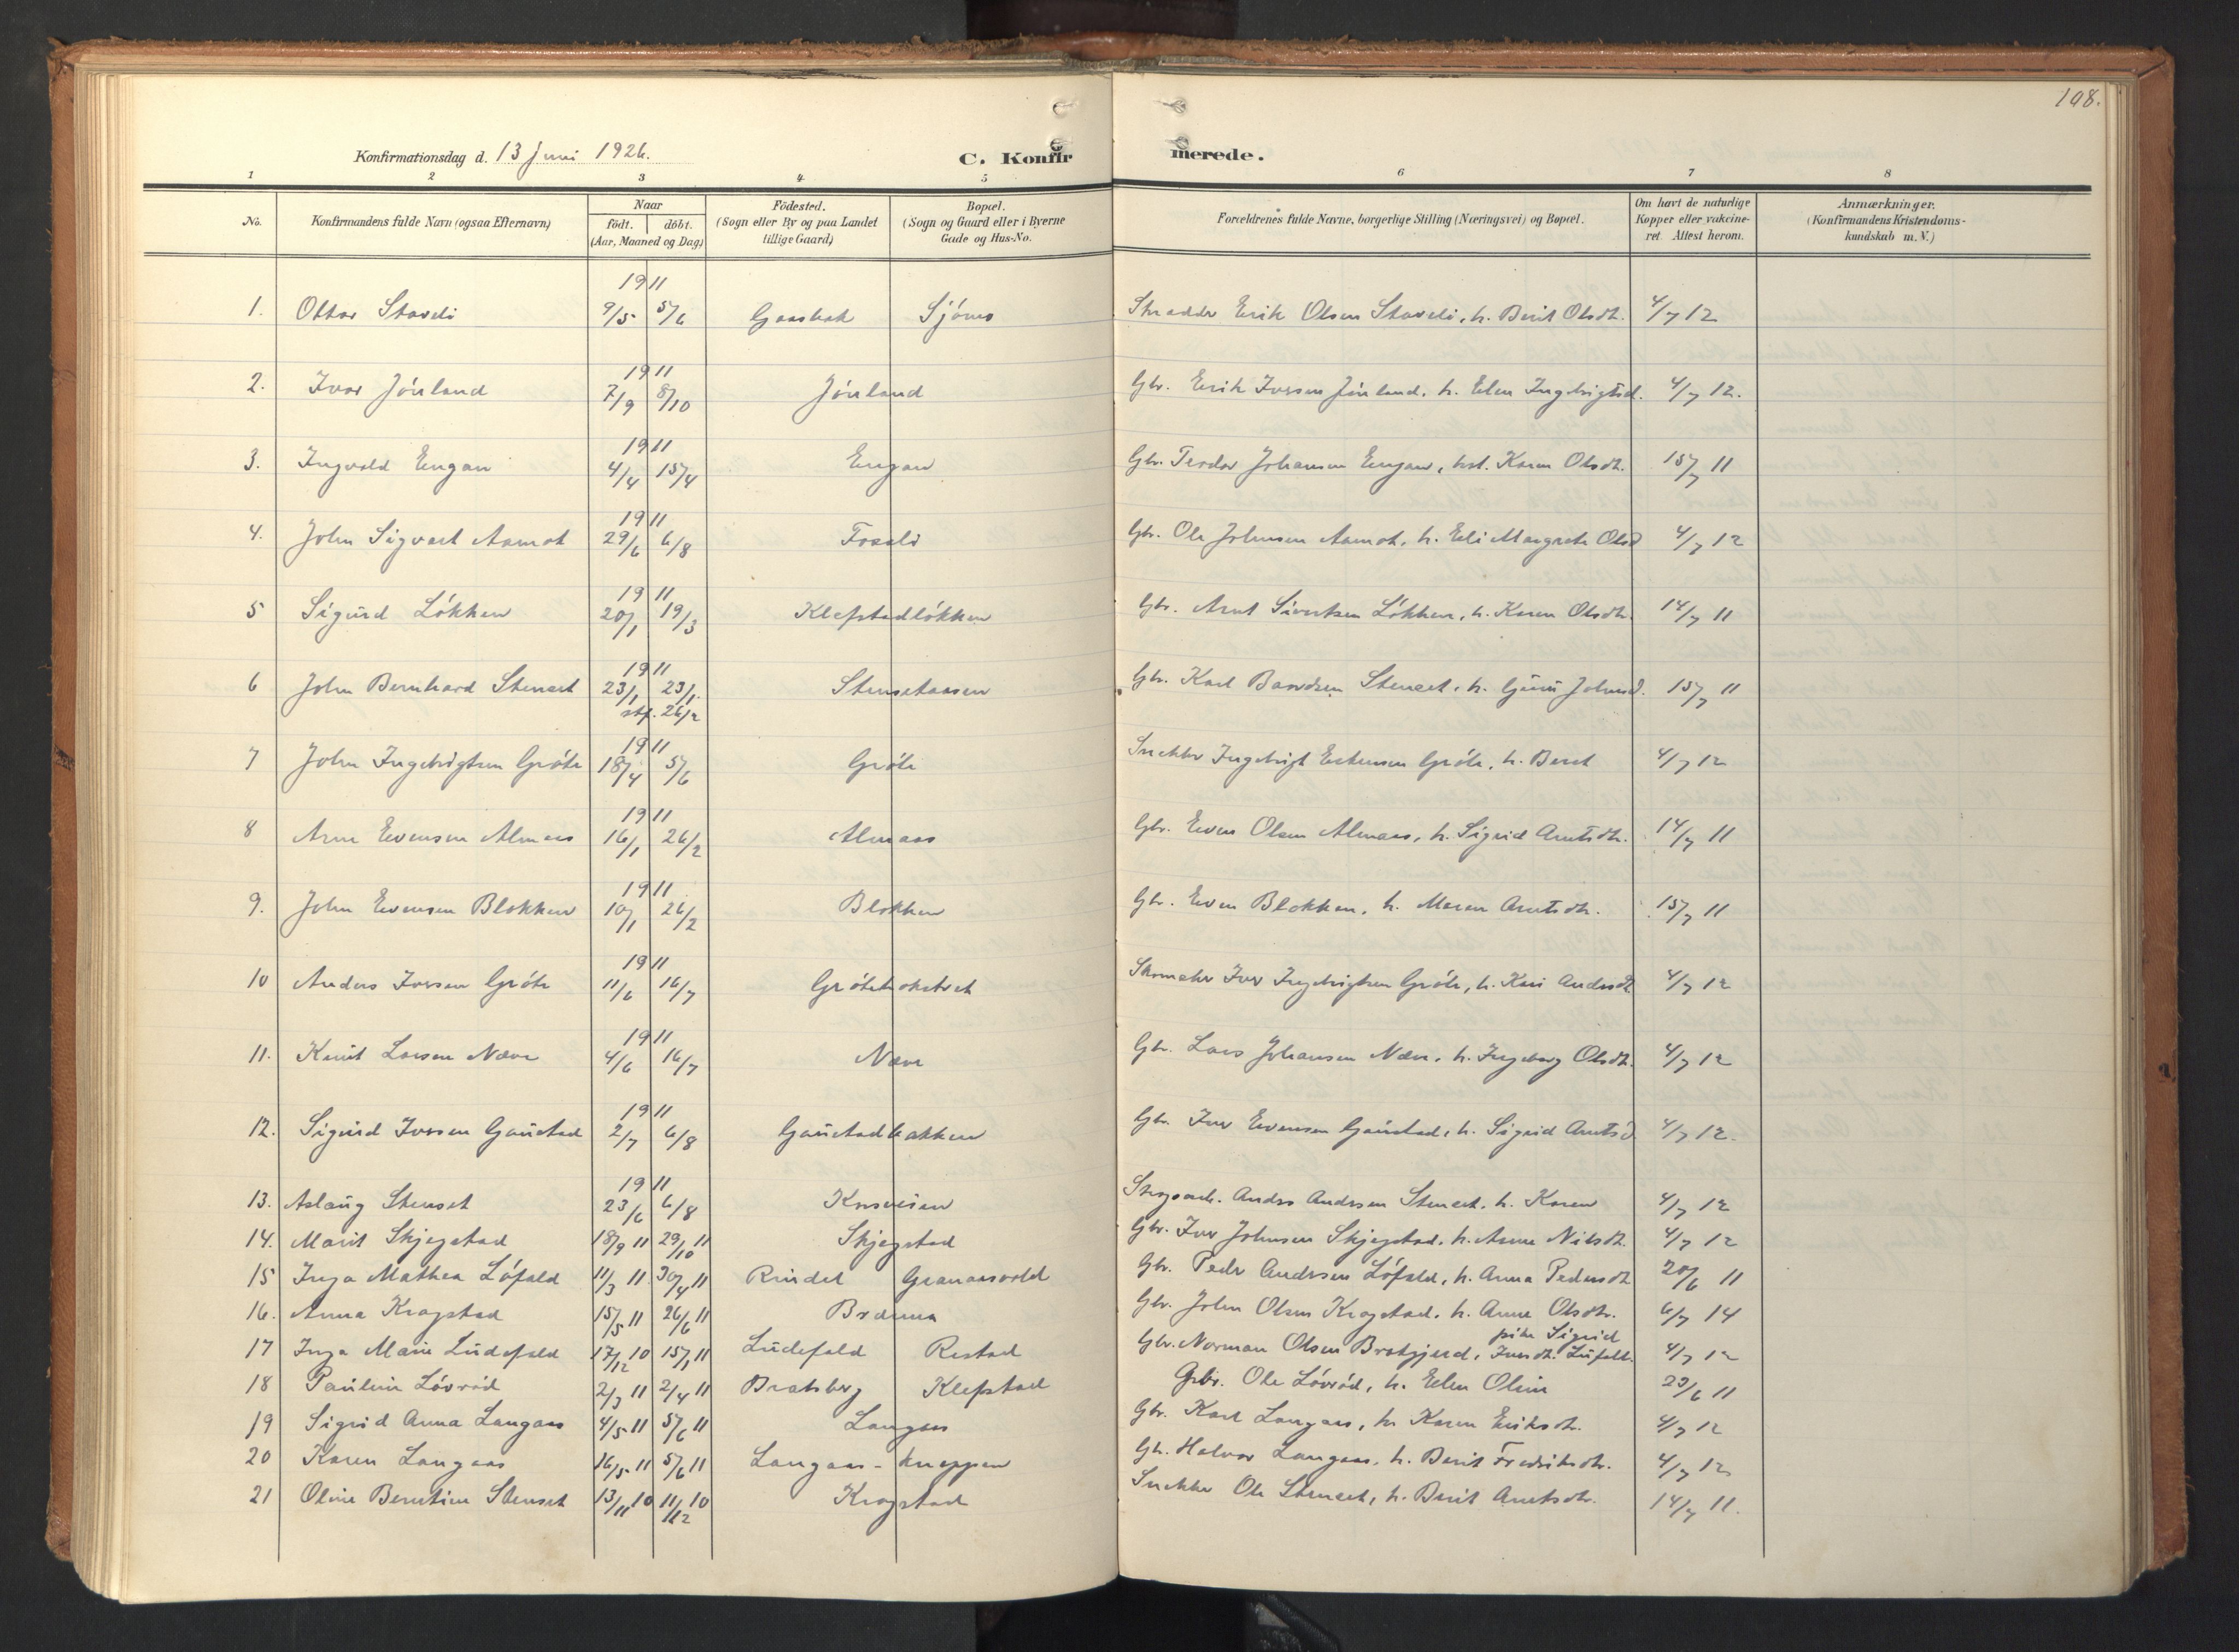 108.
Konfirmationsdag d. 13 Juni 1926.
C. Konfirmerede.
1 2 3 4 5 6 7 8
No. Konfirmandens fulde Navn (ogsaa Efternavn) Naar födt. döbt. (Aar, Maaned og Dag) Födested. (Sogn eller By og paa Landet tillige Gaard) Bopæl. (Sogn og Gaard eller i Byerne Gade og Hus-No. Forældrenes fulde Navne, borgerlige Stilling (Næringsvei) og Bopæl. Om havt de naturlige Kopper eller vakcineret. Attest herom. Anmærkninger. (Konfirmandens Kristendomskundskab m. V.)
19 11
1. Ottar Staveli 9/5 5/6 Gaasbak Sjömo Erik Olsen Staveli, h. Berit Olsdtr. 4/7 12
19 11
2. Ivar Jönland 7/9 8/10 Jönland Gbr. Erik Iversen Jönland, h. Elen Ingebrigtsd. 4/7 12.
19 11
3. Ingvald Engan 4/4 15/4 Engan Gbr. Teodor Johansen Engan, hst. Karen Olsdtr. 15/7 11
19 11
4. John Sigvart Aamot 29/6 6/8 Fossli Gbr. Ole Johnsen Aamot, h. Eli Margrete Olsd 4/7 12
19 11
5 Sigurd Lökken 20/1 19/3 Klefstadlökken Gbr. Arnt Sivertsen Lökken, h. Karen Olsdtr. 14/7 11
19 11
6 John Bernhard Stenset 23/1 23/1. stf. 26/2 Stensetaasen Gbr. Karl Baardsen Stenset, h. Guru Johnsd. 15/7 11
19 11
7 John Ingebrigtsen Gröte 18/4 5/6 Gröte Snekker Ingebrigt Estensen Gröte, h. Beret 4/7 12
19 11
8 Arne Evensen Almaas 16/1 26/2 Almaas Gbr. Even Olsen Almaas, h. Sigrid Arntsdtr. 14/7 11
19 11
9. John Evensen Blokken 10/1 26/2 Blokken Gbr. Even Blokken, h. Maren Arntsdtr. 15/7 11
19 11
10 Anders Iversen Gröte 11/6 16/7 Skomaker Iver Ingebrigtsen Gröte, h. Kari Andersdtr 4/7 12
19 11
11. Knut Larsen Næve 4/6 16/7 Næve Gbr. Lars Johansen Næve, h. Ingeborg Olsdtr. 4/7 12
19 11
12. Sigurd Iversen Gaustad 2/7 6/8 Gaustadbakken Gbr. Iver Evensen Gaustad, h. Sigrid Arntsd 4/7 12.
19 11
13. Aslaug Stenset 23/6 6/8 Anders Andersen Stenset, h. Karen 4/7 12
14. Marit Skjegstad 18/9 11 29/10 11 Skjegstad Gbr. Iver Johnsen Skjegstad, h. Anne Nilsdtr. 4/7 12
15 Inga Mathea Löfald 11/3 11. 30/4 11 Rindal Granaasvold Gbr. Peder Andersen Löfald, h. Anna Pedersdtr 20/6 11
16. Anna Kragstad 15/5 11 26/6 11 Gbr. John Olsen Kragstad, h. Anne Olsdtr. 6/7 14
17 Inga Marie Ludefald 17/12 10 15/1 11 Ludefald Restad Gbr. Norman Olsen Bratgjerd, pike Sigrid Iversdtr. 4/7 12
18 Pauline Lövröd 2/3 11 2/4 11 Bratsberg Klefstad Gbr. Ole Lövröd, h. Elen Oline 23/6 11
19 Sigrid Anna Langaas 4/5 11 5/6 11 Langaas Gbr. Karl Langaas, h. Karen Eriksdtr. 4/7 12
20 Karen Langaas 16/5 11 5/6 11 Langaas-knappen Gbr. Halvor Langaas, h. Berit Fredriksdtr. 4/7 12
21 Oline Berntine Stenset 13/11 10 11/12 10 Kragstad Snekker Ole Stenset, h. Berit Arntsdtr. 14/7 11.